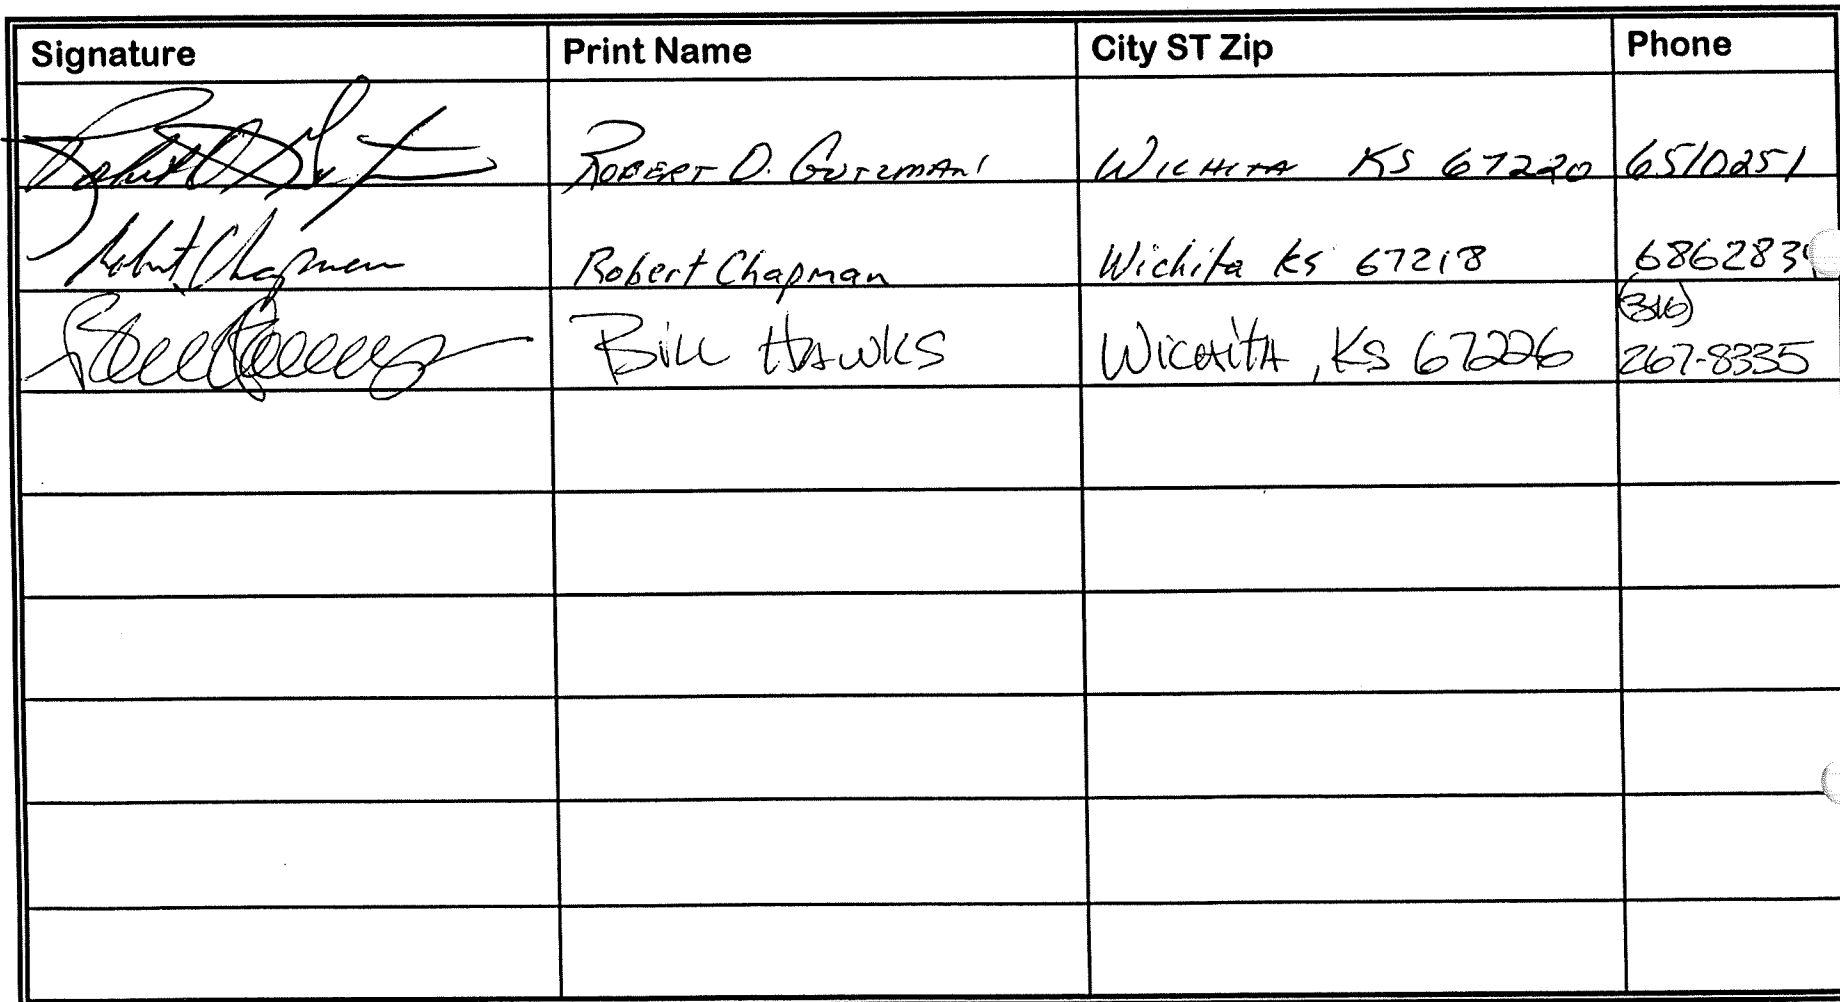 Signature Print Name City ST Zip Phone
Robert D. Gutzman Wichita KS 67220 6510251
Robert Chapman Robert Chapman Wichita KS 67218 686283
(316)
Bill Hawks Wichita, KS 67226 267-8335